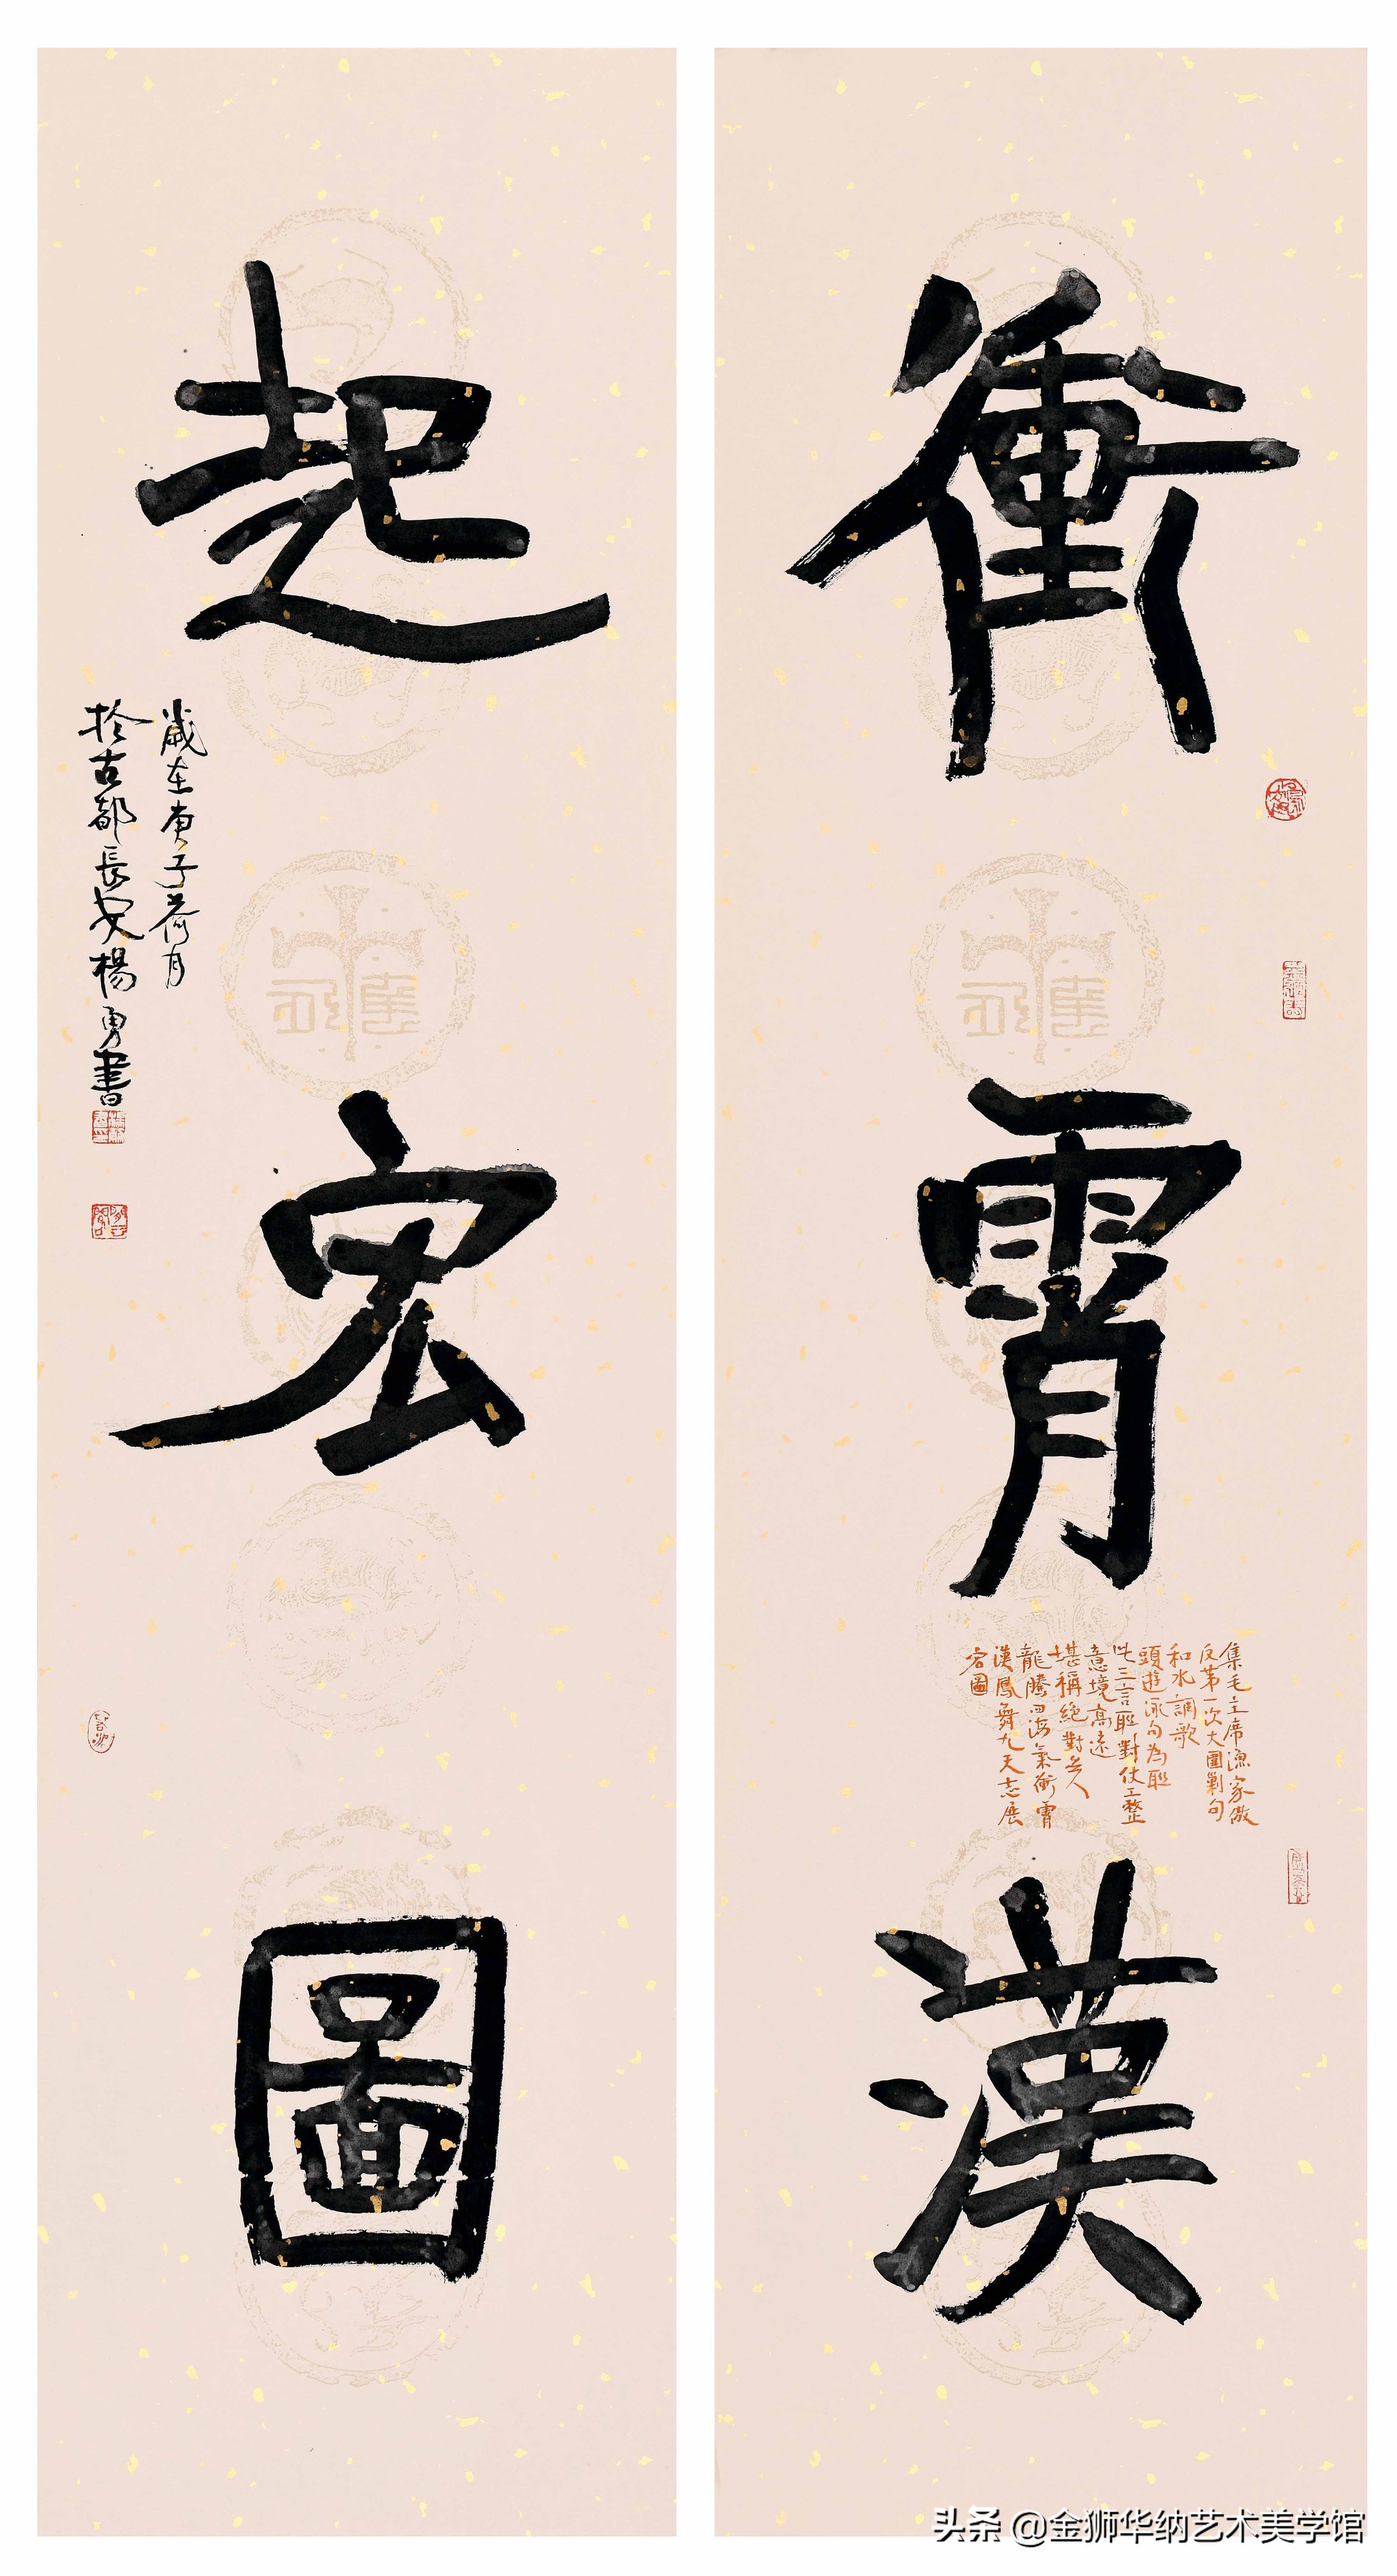 衝霄漢
集毛主席漁家傲
反第一次大圍剿句
和水調歌
頭游泳句為聯
此三言聯對仗工整
意境高遠
堪稱絕對

龍騰四海氣衝霄
漢鳳舞九天志展
宏圖
起宏圖
歲在庚子荷月
於古都長安楊勇書
头条 @金狮华纳艺术美学馆